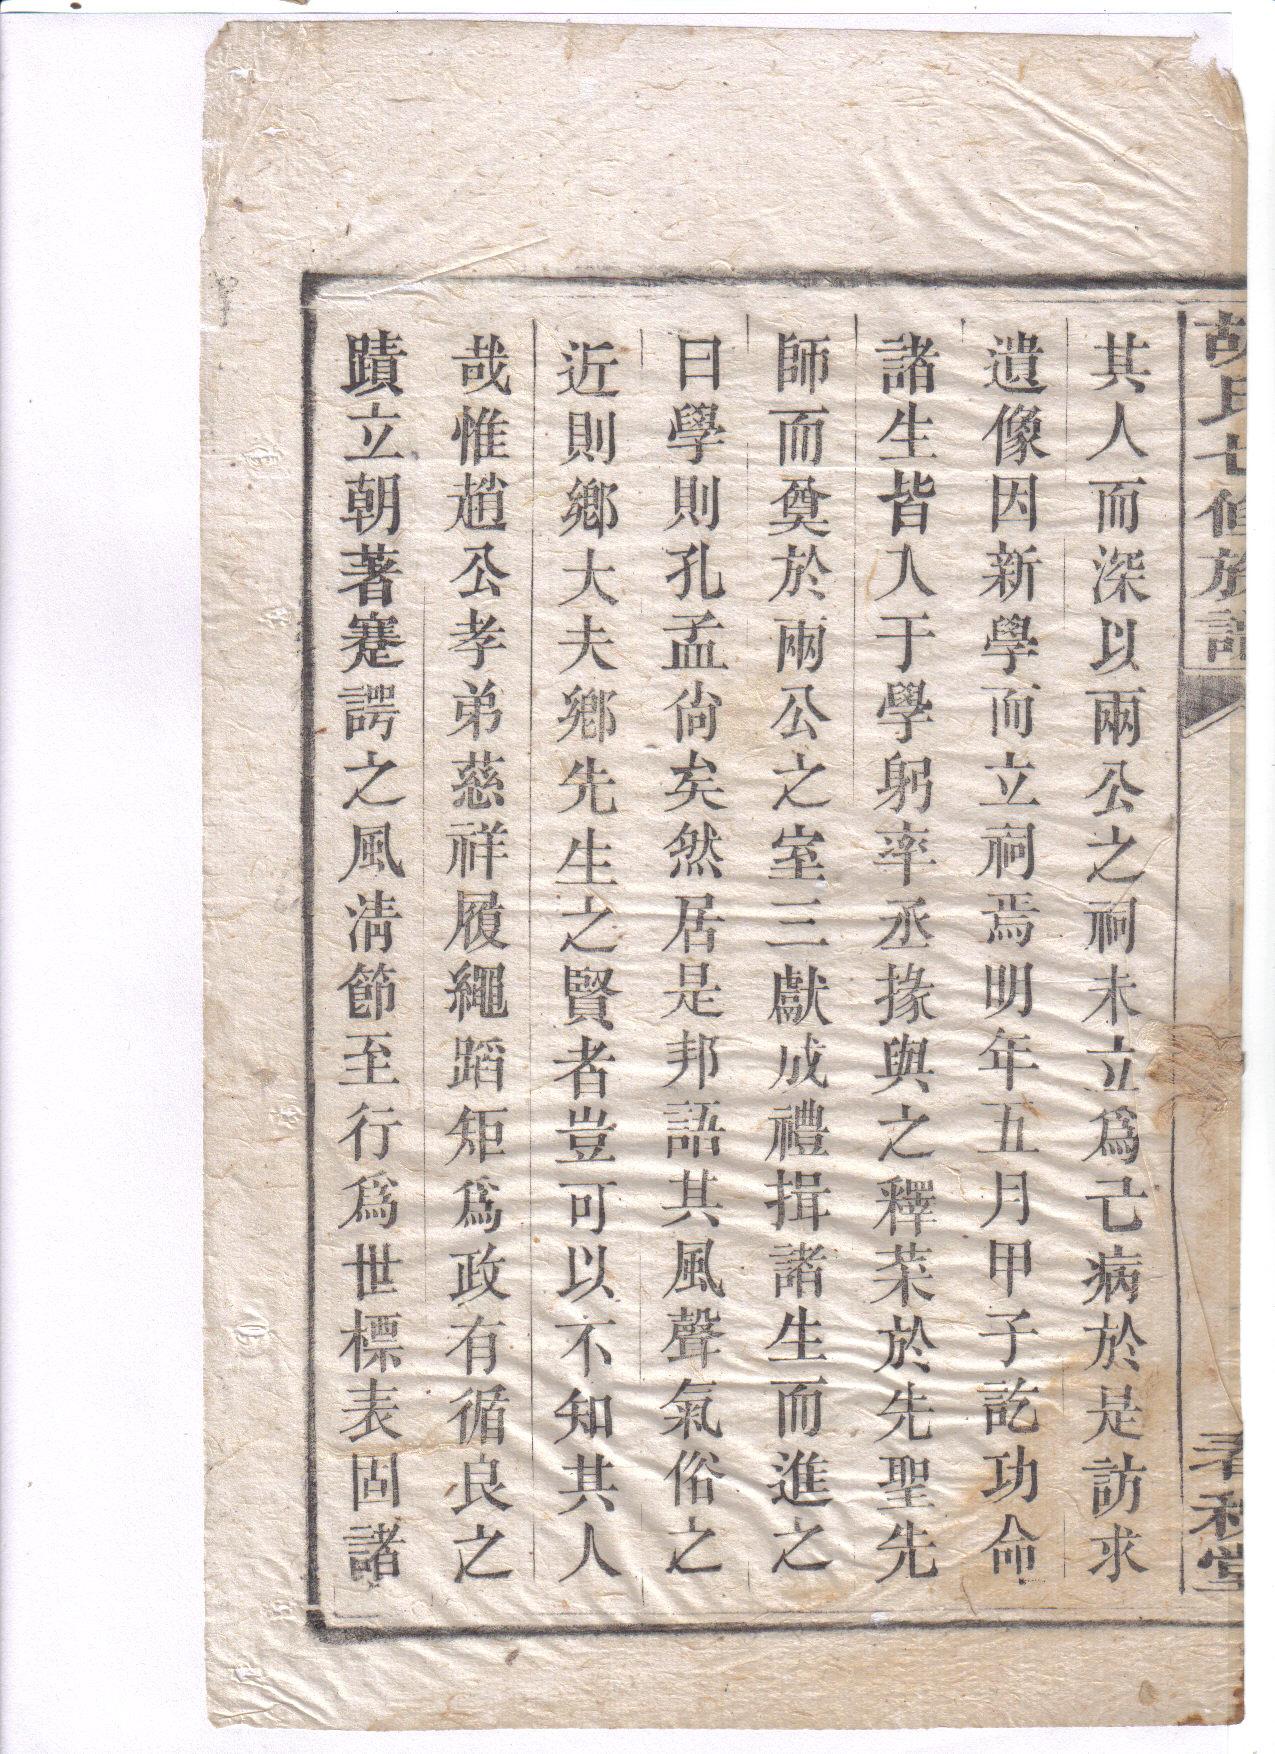 胡氏七修族譜
春秋堂
其人而深以兩公之祠未立爲己病於是訪求
遺像因新學而立祠焉明年五月甲子訖功命
諸生皆入于學躬率丞掾與之釋菜於先聖先
師而奠於兩公之室三獻成禮揖諸生而進之
曰學則孔孟尙矣然居是邦語其風聲氣俗之
近則鄉大夫鄉先生之賢者豈可以不知其人
哉惟趙公孝弟慈祥履繩蹈矩爲政有循良之
蹟立朝著蹇諤之風淸節至行爲世標表固諸